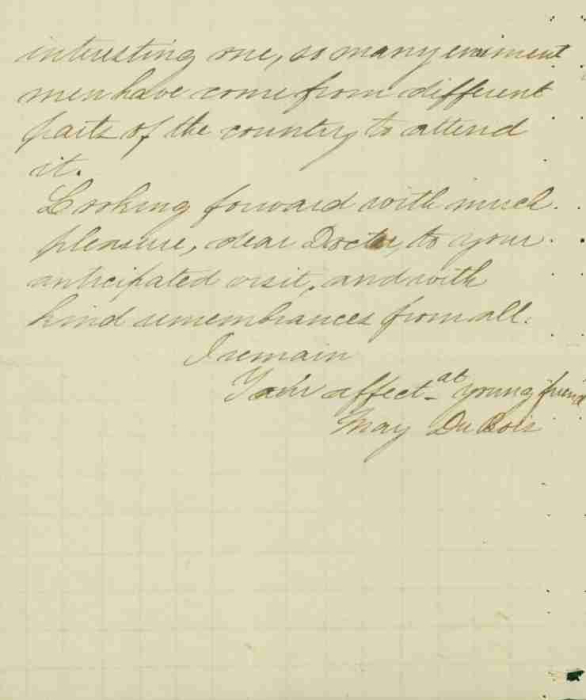 interesting one, so many eminent
men have come from different
parts of the country to attend
it.
Looking forward with much
pleasure, dear Doctor, to your
anticipated visit, and with
kind remembrances from all.
I remain
Your affect-at young friend
May Du Bois